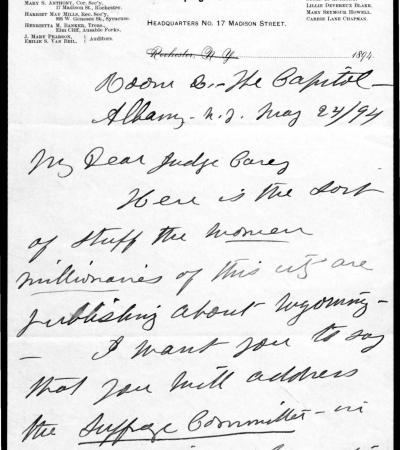 MARY S. ANTHONY, Cor. Sec'y,
17 Madison St., Rochester.
HARRIET MAY MILLS, Rec. Sec'y,
926 W. Genesee St., Syracuse.
HENRIETTA M. BANKER, Treas.,
Elm Cliff, Ausable Forks.
J. MARY PEARSON,
EMILIE S. VAN BEIL,
Auditors.
HEADQUARTERS NO. 17 MADISON STREET.
LILLIE DEVEREUX BLAKE,
MARY SEYMOUR HOWELL,
CARRIE LANE CHAPMAN.
Rochester, N. Y. 1894
Room 2 - The Capitol -
Albany - N.Y. May 24/94
My Dear Judge Carey
Here is the sort
of stuff the women
millionaries of this city are
publishing about Wyoming -
- I want you to say
that you will address
the Suffrage Committee - in